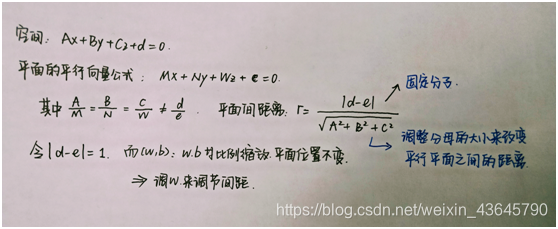 空间: Ax+By+Cz+d=0.
平面的平行向量公式: Mx+Ny+Wz+e=0.
其中 A/M = B/N = C/W ≠ d/e. 平面间距离: r= |d-e| / √(A²+B²+C²)
→ 固定分子.
↳ 调整分母的大小来改变
平行平面之间的距离.
令|d-e|=1. 而(w,b): w.b 对比例缩放.平面位置不变.
⇒ 调w来调节间距.
https://blog.csdn.net/weixin_43645790